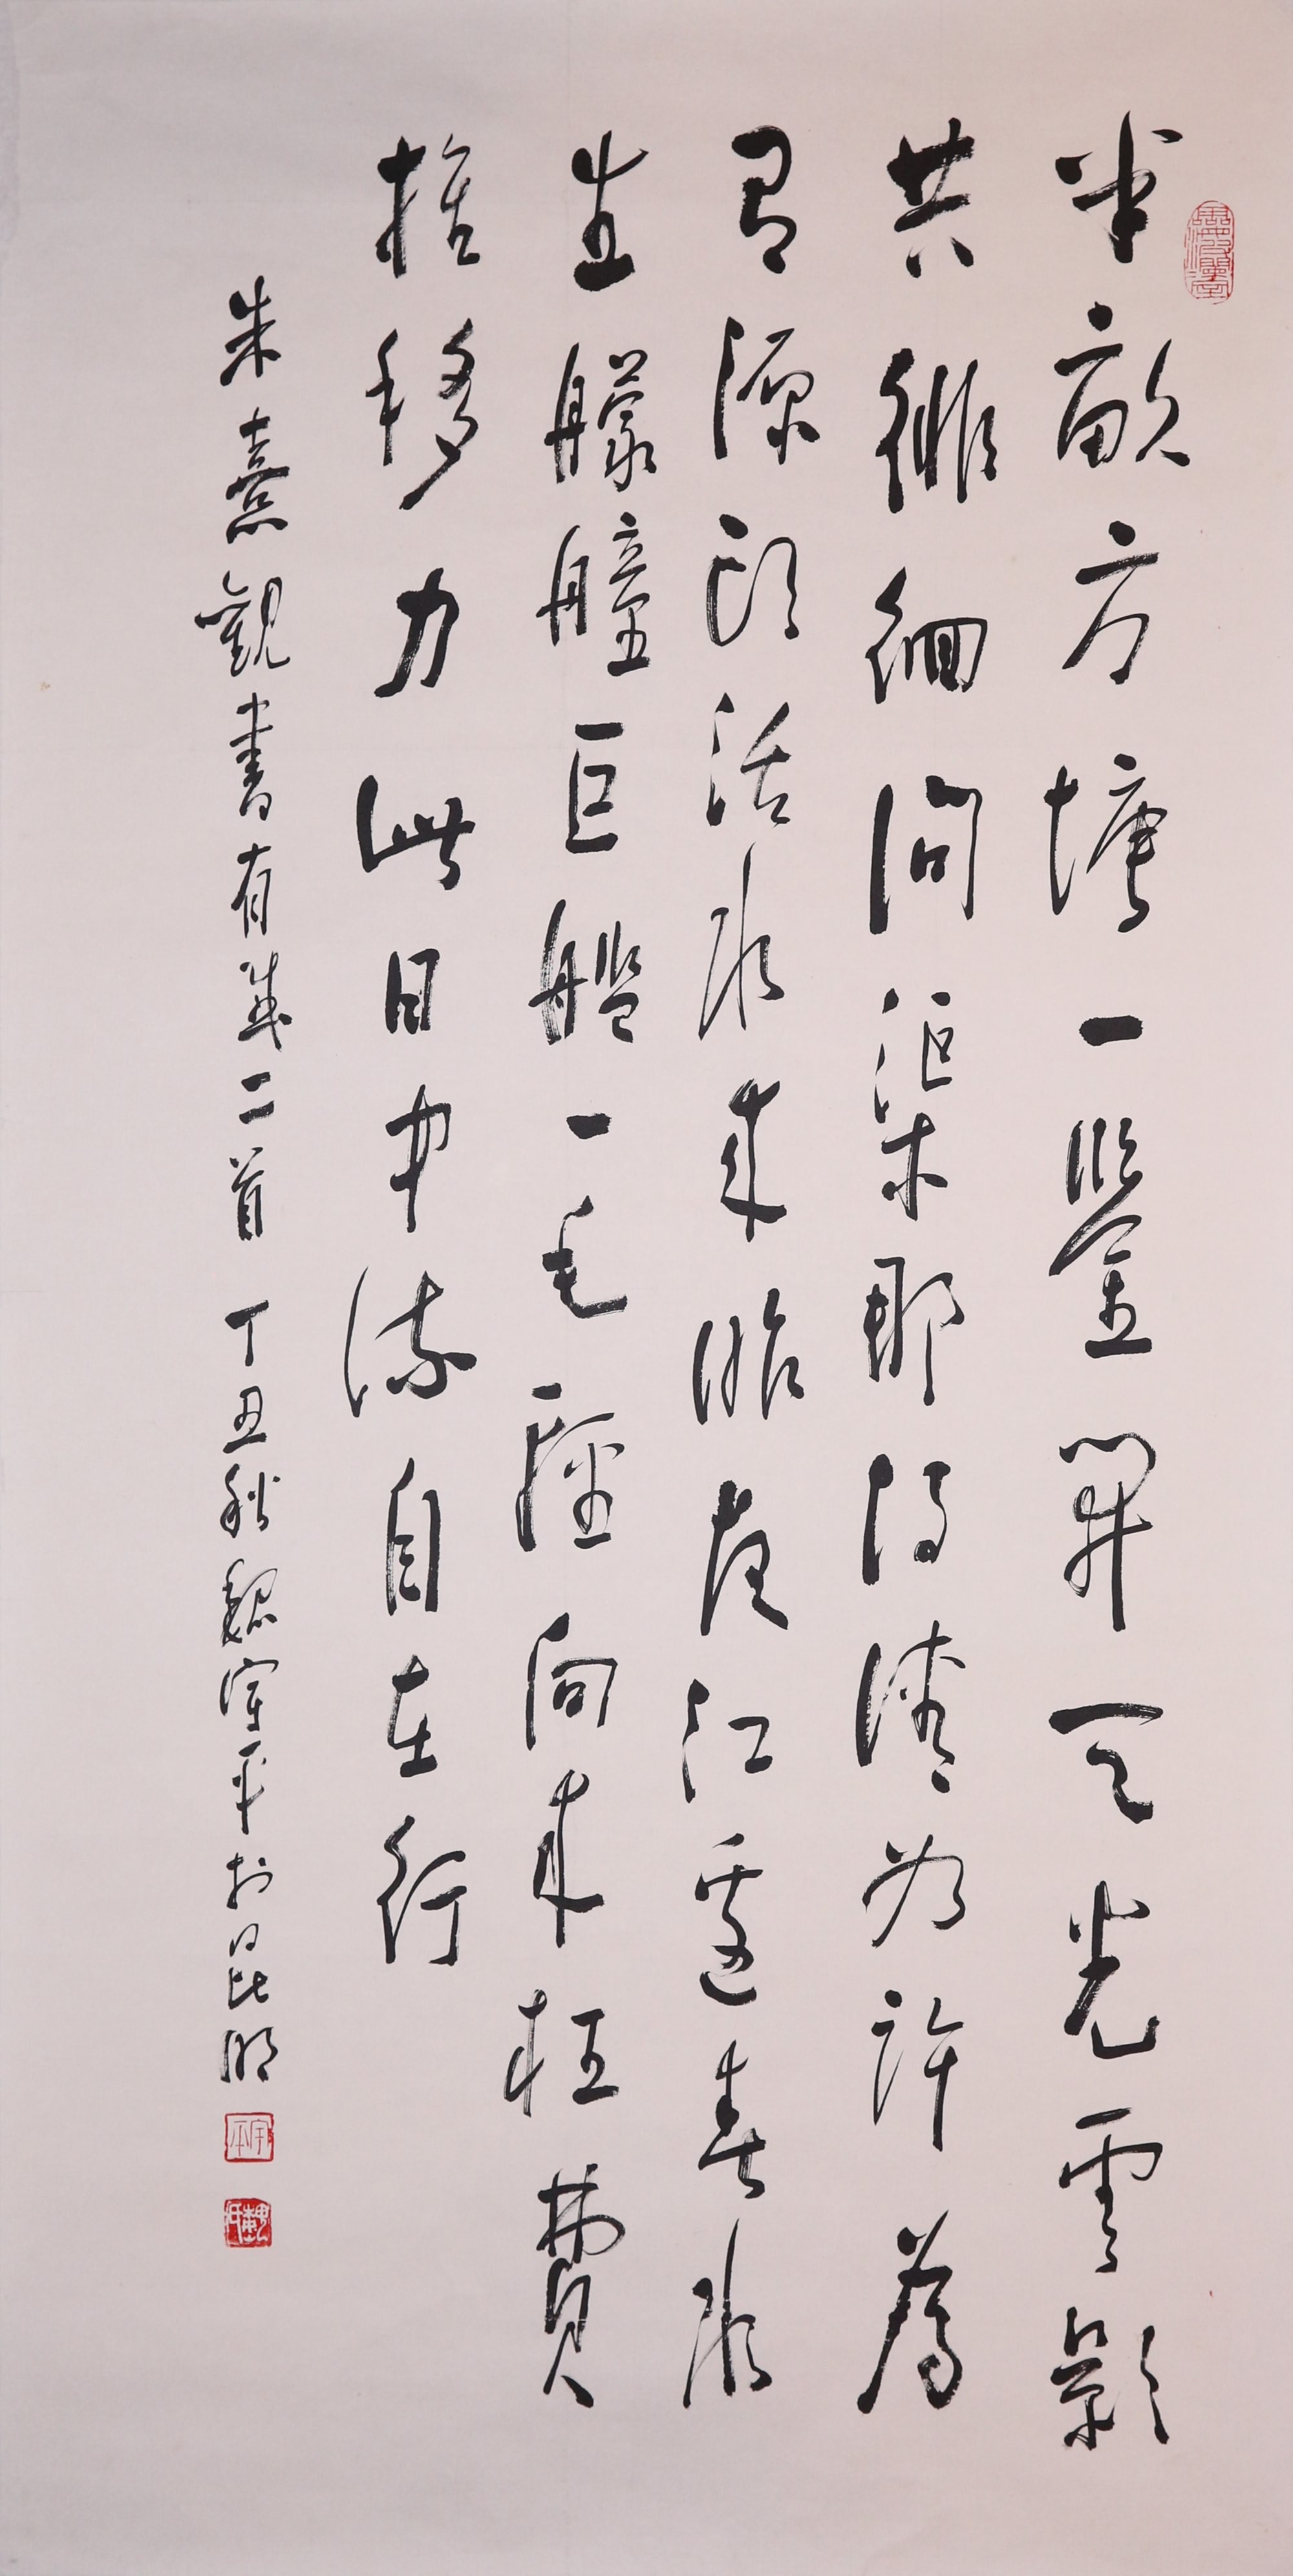 半畝方塘一鑒開天光雲影
共徘徊問渠那得清如許為
有源頭活水來昨夜江邊春水
生艨艟巨艦一毛輕向來枉費
推移力此日中流自在行
朱熹觀書有感二首 丁丑秋魏宇平於昆明
宇平
魏氏